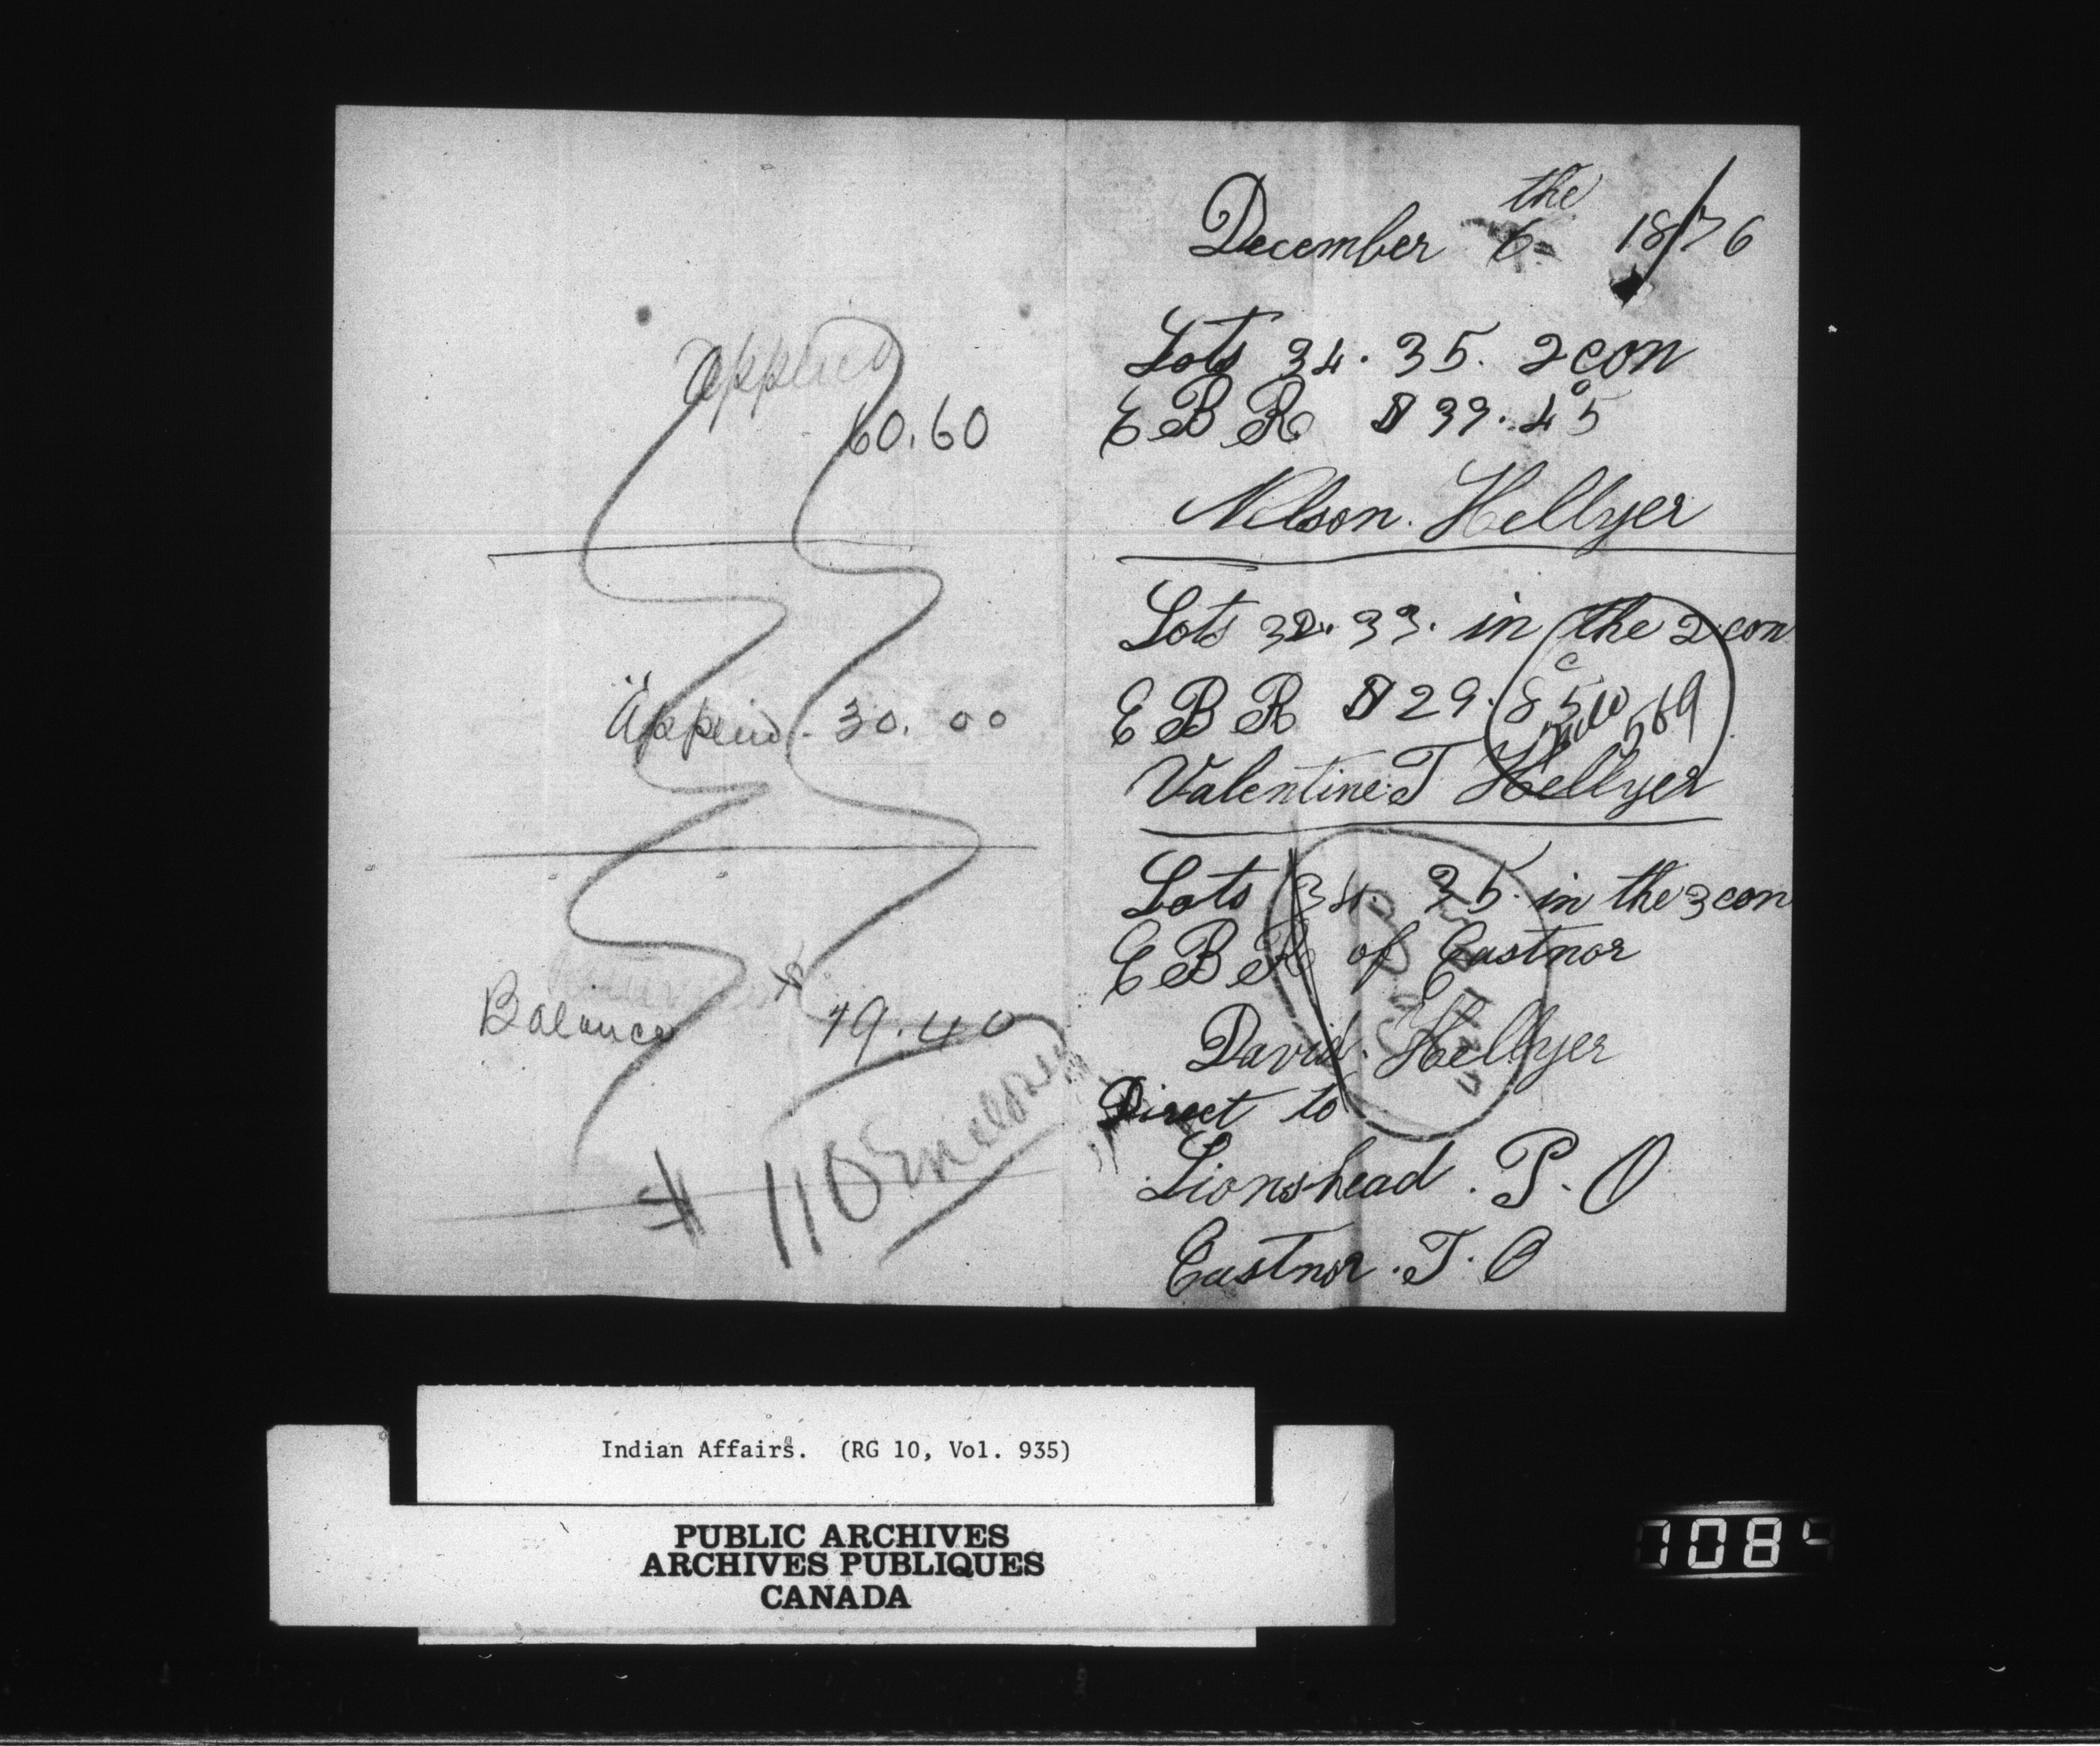 applied
60.60
Applied. 30.00
Balance 19.40
$ 110 Enclosed
December 6 the 1876
Lots 34. 35. 2 con
E B R $ 39. 45 c
Nelson. Hellyer
Lots 32. 33. in the 2 con
E B R $ 29. 85 c
569
Valentine. T Hellyer
Lots 34. 35. in the 3 con
E B R of Eastnor
David. Hellyer
Direct to
Lionshead. P. O
Eastnor. T. O
Indian Affairs. (RG 10, Vol. 935)
PUBLIC ARCHIVES
ARCHIVES PUBLIQUES
CANADA